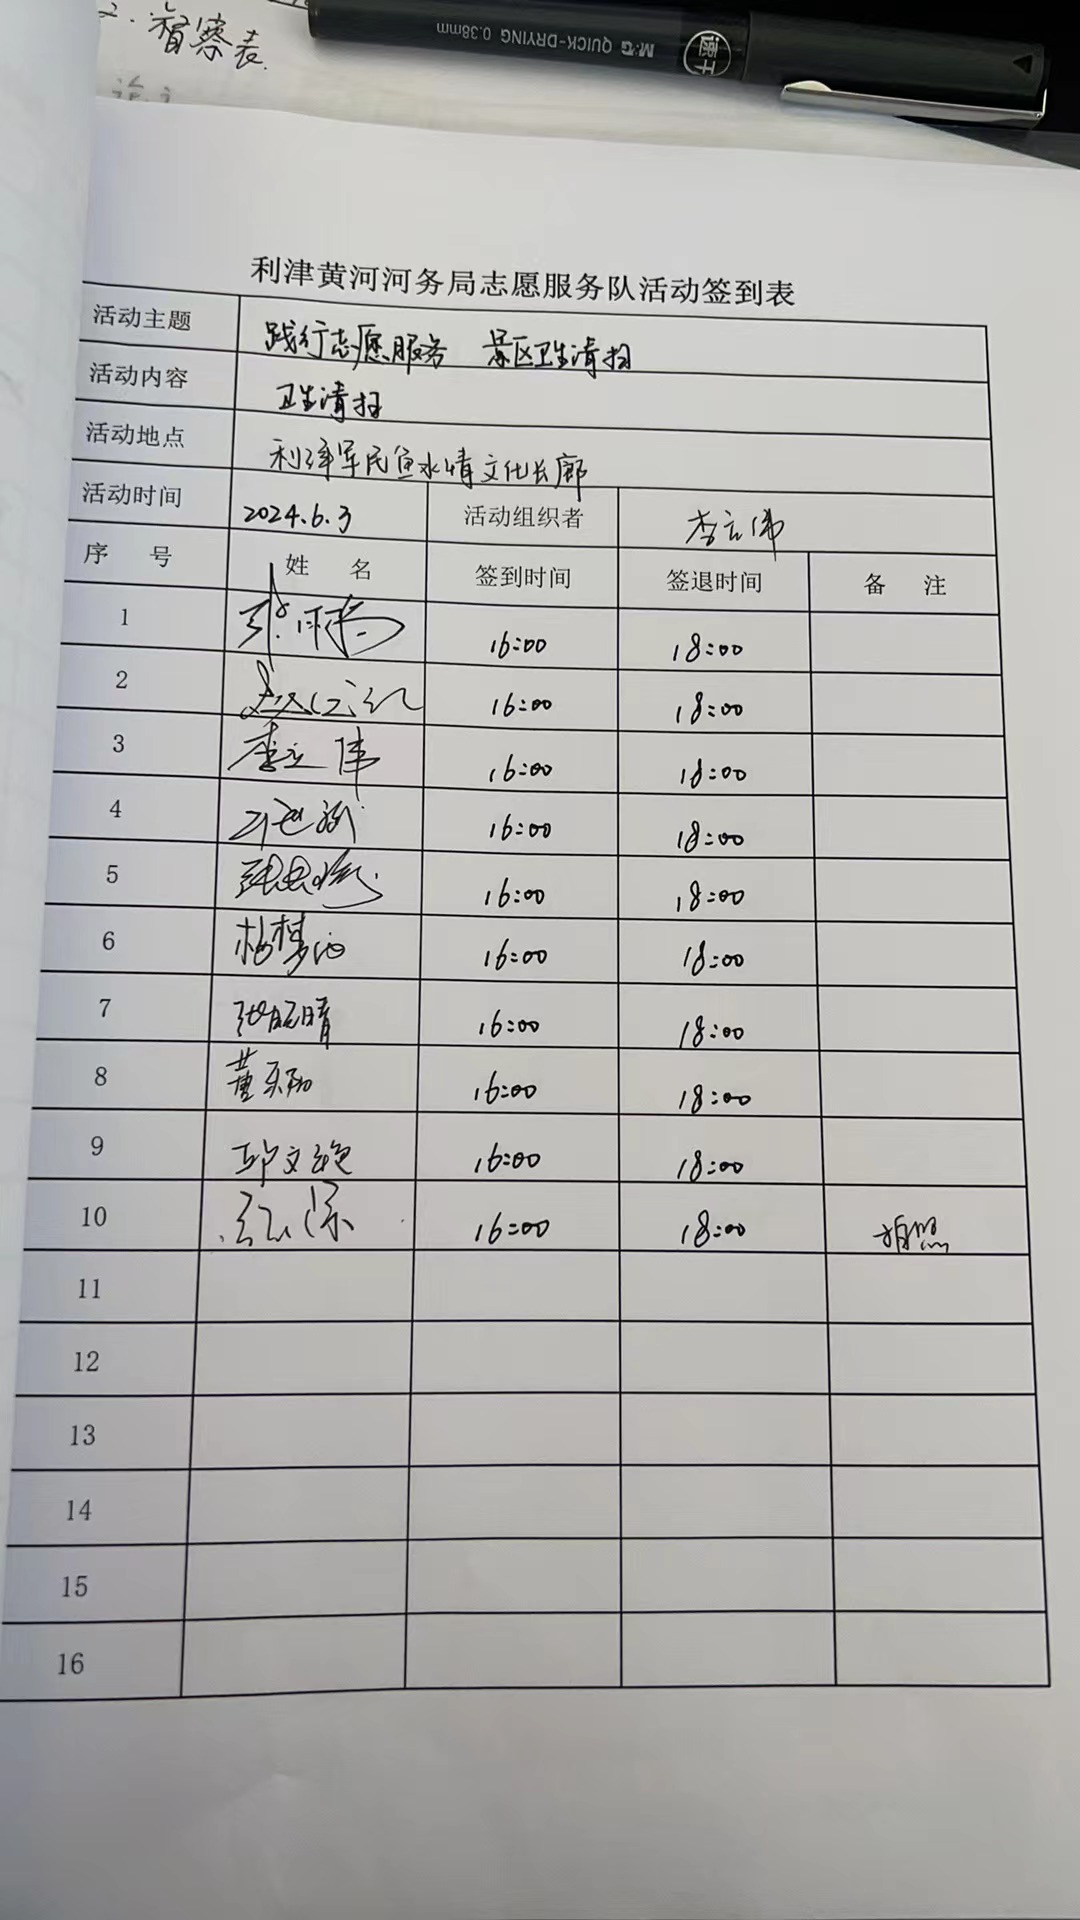 2.督察表
M&G QUICK-DRYING 0.38mm
速干
利津黄河河务局志愿服务队活动签到表
活动主题 践行志愿服务 景区卫生清扫
活动内容 卫生清扫
活动地点 利津军民鱼水情文化长廊
活动时间 2024.6.3 活动组织者 李立伟
序 号 姓 名 签到时间 签退时间 备 注
1 16:00 18:00
2 16:00 18:00
3 李立伟 16:00 18:00
4 16:00 18:00
5 16:00 18:00
6 16:00 18:00
7 16:00 18:00
8 16:00 18:00
9 16:00 18:00
10 16:00 18:00 拍照
11
12
13
14
15
16